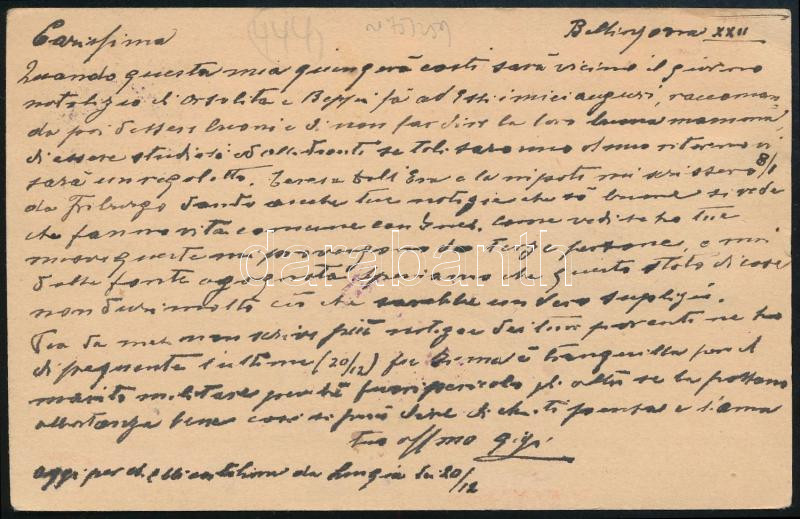 Carissima Bellinzona XXII
Quando questa mia giungerà costì sarà vicino il giorno
natalizio d'Orsolita e Beppi fà ad Essi i miei auguri, raccoman-
da poi d'essere buoni e di non far dire la loro buona mamma,
di essere studiosi ed
sarà un regaletto. Teresa Dall'Era e la nipote mi scrissero 8/1
da Friburgo dando anche tue notizie che sò buone si vede
che fanno vita comune con come vedi se ho tue
nuove queste mi provengono da terze persone, e mai
dalla fonte agognata speriamo che questo stato di cose
non duri molto ciò che sarebbe un vero supplizio.
Tu da me non scrivi più notizie dei tuoi parenti ne ho
di frequente l'ultime (20/12) fu Emma è tranquilla per il
marito militare perché fuori pericolo gli altri se la passano
abbastanza bene così si può dire di chi ti pensa e t'ama
tuo affmo Gigi
oggi per di cartolina da Luigia del 20/12
darabanth